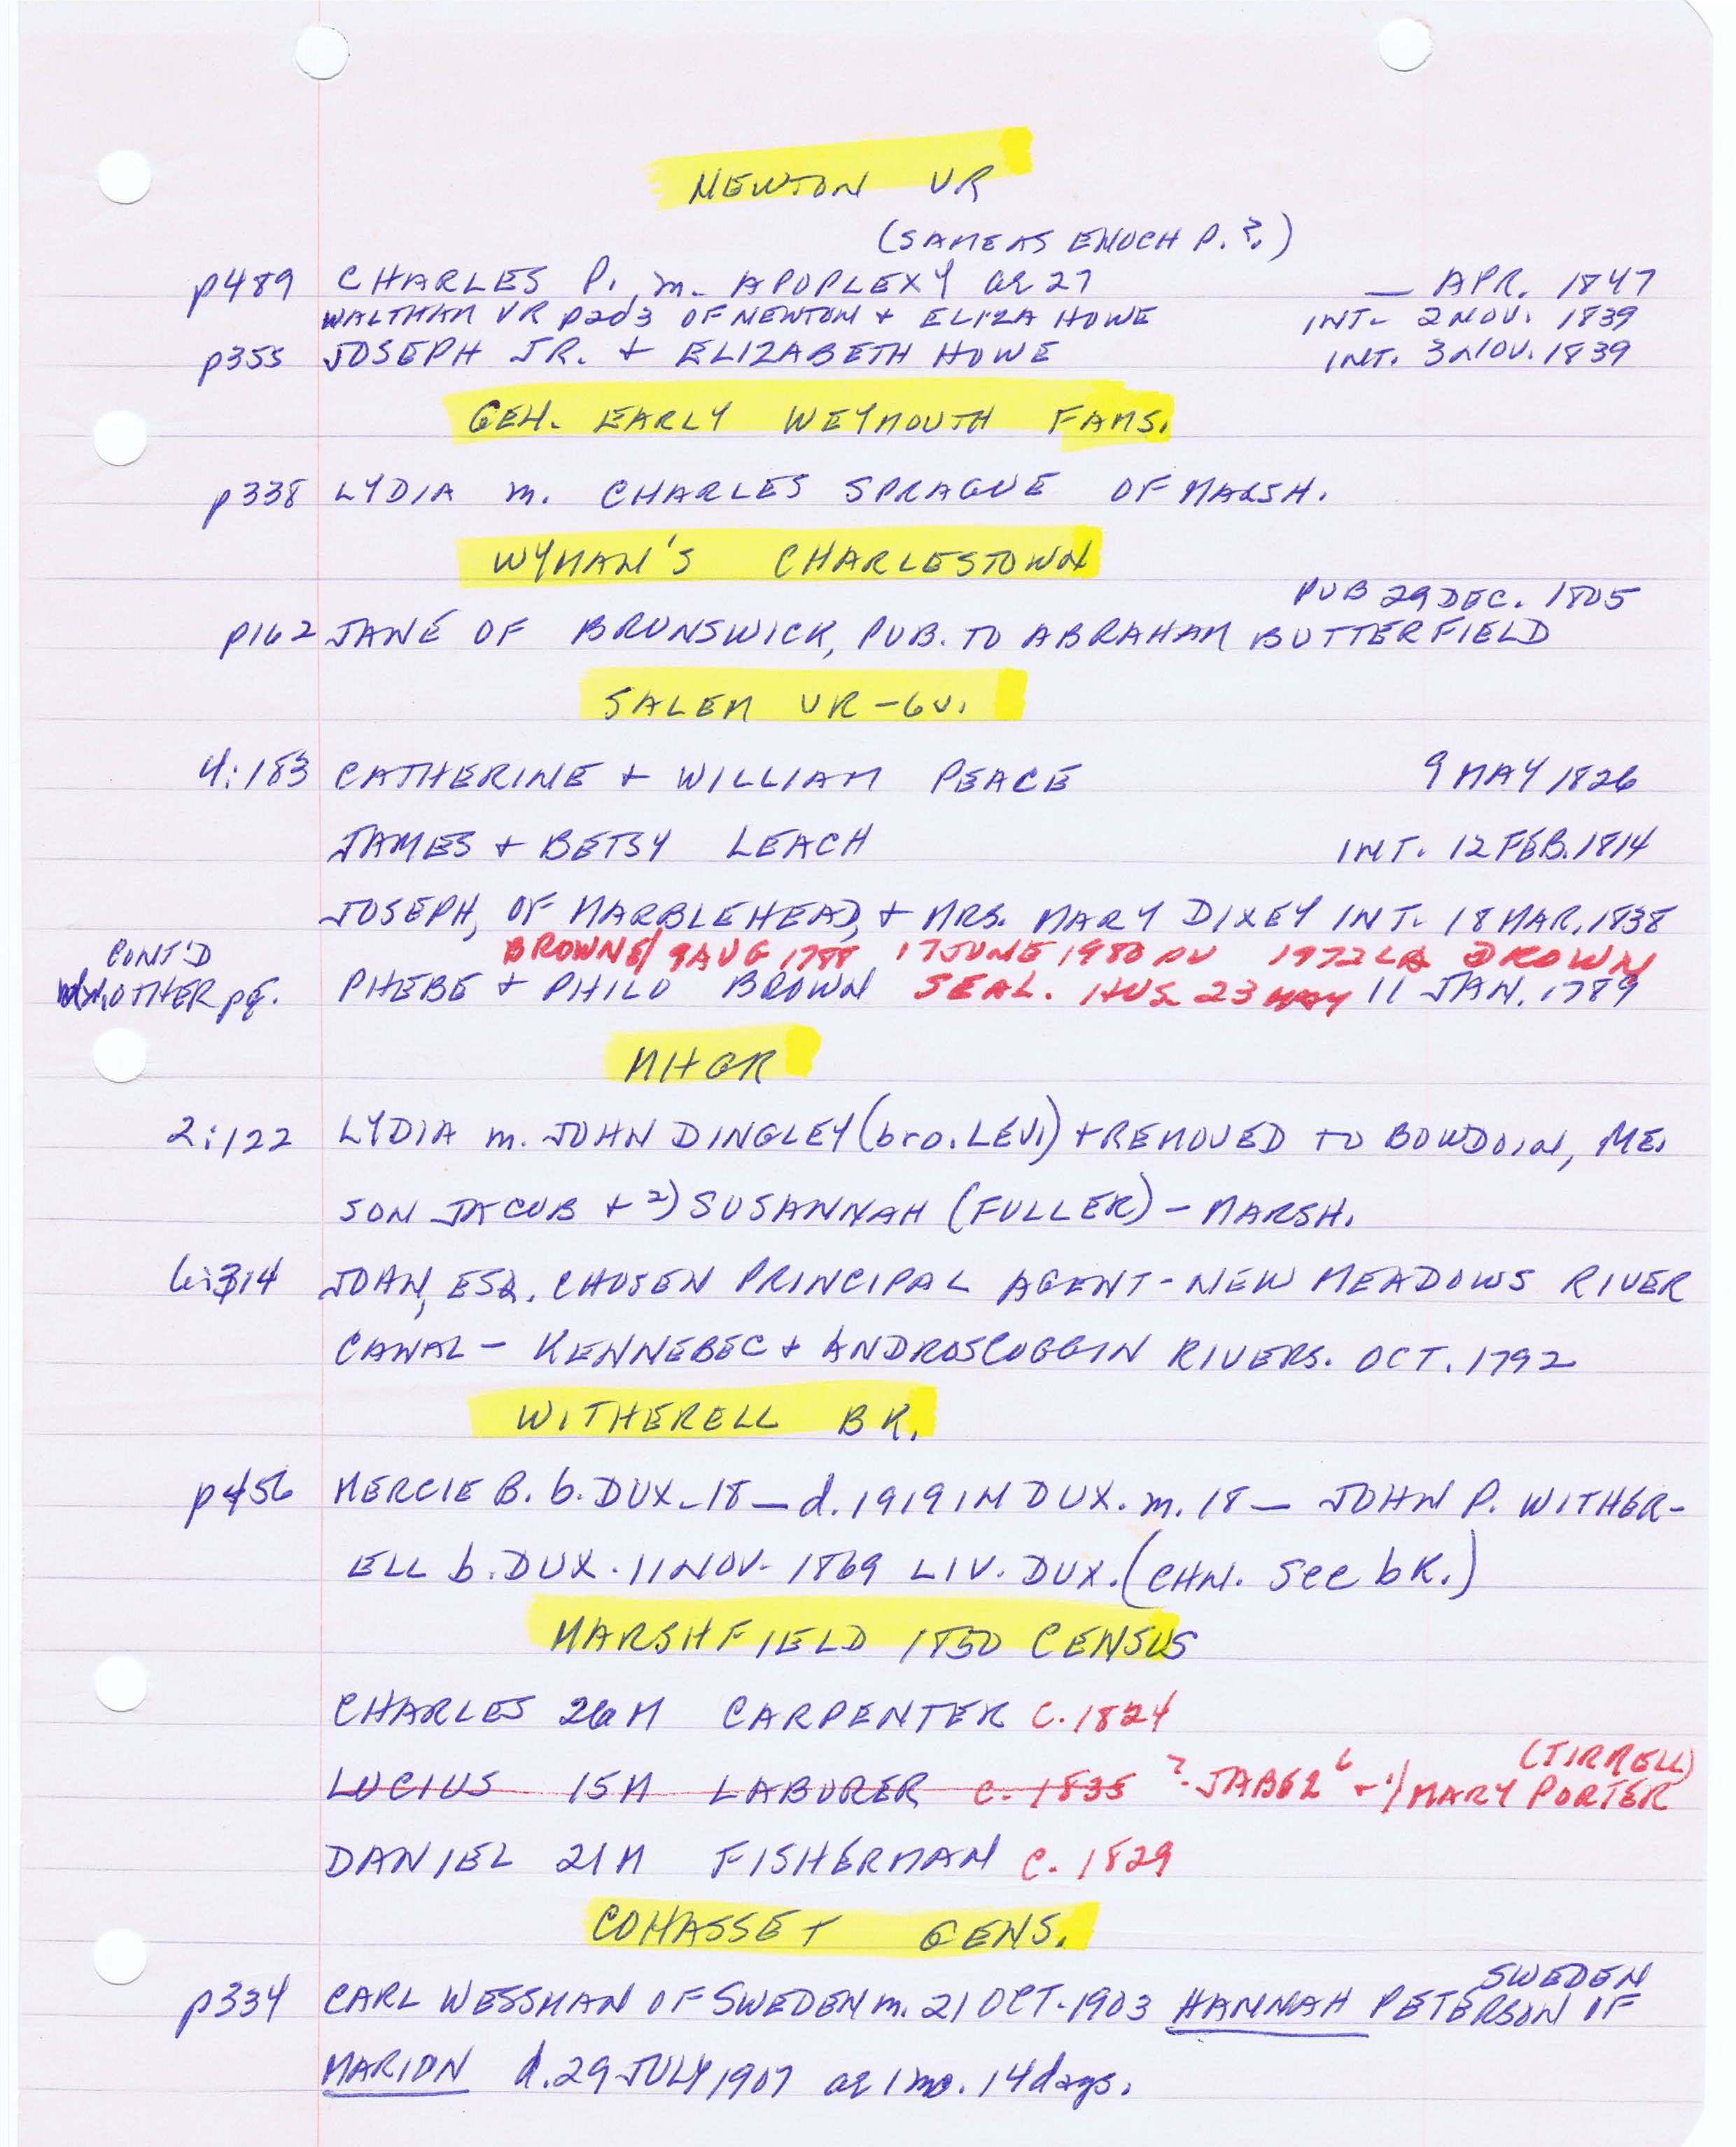 NEWTON VR
(SAME AS ENOCH P.?)
p489 CHARLES P., m. APOPLEXY ae 27 — APR. 1847
WALTHAM VR p203 OF NEWTON + ELIZA HOWE INT- 2 NOV. 1839
p355 JOSEPH JR. + ELIZABETH HOWE INT. 3 NOV. 1839
GEN. EARLY WEYMOUTH FAMS.
p338 LYDIA m. CHARLES SPRAGUE OF MARSH.
WYMAN'S CHARLESTOWN
PUB 29 DEC. 1805
p162 JANE OF BRUNSWICK, PUB. TO ABRAHAM BUTTERFIELD
SALEM VR-6V.
4:183 CATHERINE + WILLIAM PEACE 9 MAY 1826
JAMES + BETSY LEACH INT. 12 FEB. 1814
JOSEPH, OF MARBLEHEAD, + MRS. MARY DIXEY INT. 18 MAR. 1838
CONT'D BROWNE/ 9 AUG 1788 17 JUNE 1980 PV 1972 LA BROWN
OTHER pg. PHEBE + PHILO BROWN SEAL. HUS 23 MAY 11 JAN. 1789
MHGR
2:122 LYDIA m. JOHN DINGLEY (bro. LEVI) + REMOVED TO BOWDOIN, ME.
SON JACOB + 2) SUSANNAH (FULLER) - MARSH.
6:314 JOHN, ESQ. CHOSEN PRINCIPAL AGENT - NEW MEADOWS RIVER
CANAL - KENNEBEC + ANDROSCOGGIN RIVERS. OCT. 1792
WITHERELL BK.
p456 MERCIE B. b. DUX. 18— d. 1919 IN DUX. m. 18— JOHN P. WITHER-
ELL b. DUX. 11 NOV. 1869 LIV. DUX. (CHN. See bK.)
MARSHFIELD 1850 CENSUS
CHARLES 26 M CARPENTER c. 1824
(TIRRELL)
LUCIUS 15 M LABORER c. 1835 ?. JABEZ 6 + 1/ MARY PORTER
DANIEL 21 M FISHERMAN c. 1829
COHASSET GENS.
SWEDEN
p334 CARL WESSMAN OF SWEDEN m. 21 OCT. 1903 HANNAH PETERSON OF
MARION d. 29 JULY 1907 ae 1 mo. 14 days.